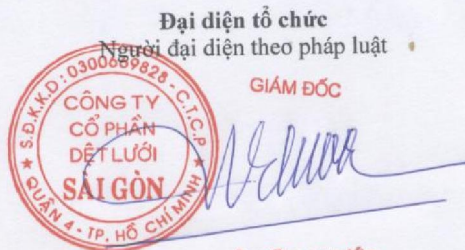 Đại diện tổ chức
Người đại diện theo pháp luật
GIÁM ĐỐC
S.Đ.K.K.D: 0300689828 - C.T.C.P
CÔNG TY
CỔ PHẦN
DỆT LƯỚI
SÀI GÒN
QUẬN 4 - TP. HỒ CHÍ MINH